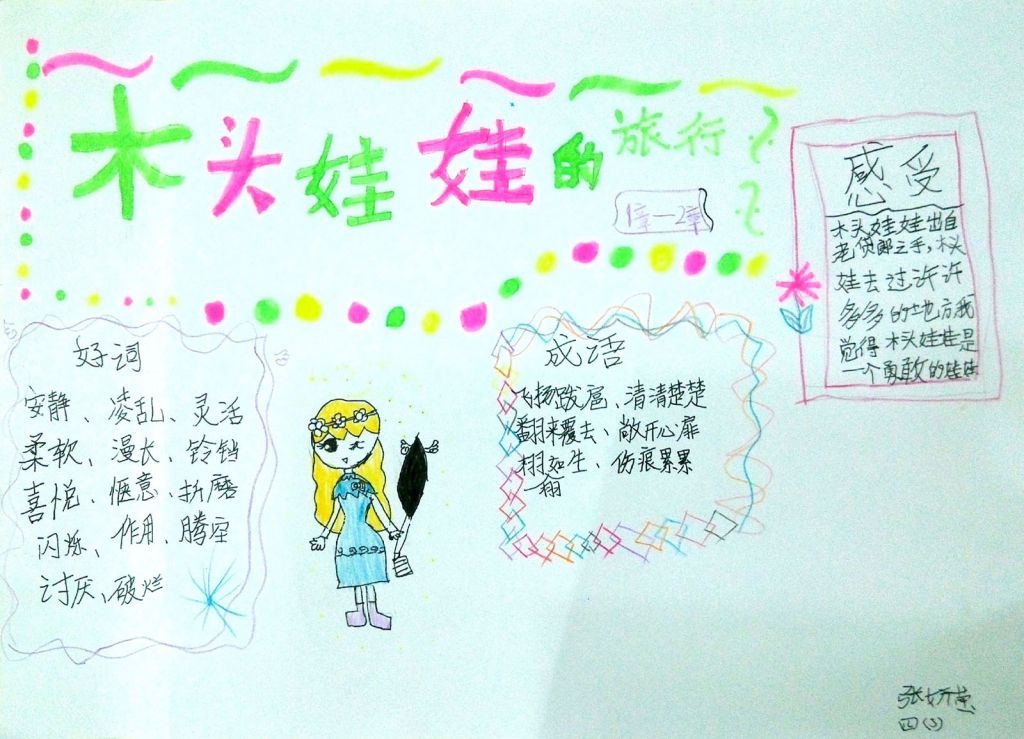 木头娃娃的旅行
1章—2章
感受
木头娃娃出自
老货郎之手，木头
娃去过许许
多多的地方我
觉得木头娃娃是
一个勇敢的娃娃
好词
安静、凌乱、灵活
柔软、漫长、铃铛
喜悦、惬意、折磨
闪烁、作用、腾空
讨厌、破烂
成语
飞扬跋扈、清清楚楚
翻来覆去、敞开心扉
栩如生、伤痕累累
栩
张娇
四(3)